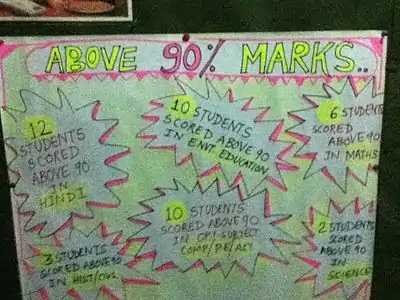 ABOVE 90% MARKS..
12
STUDENTS
SCORED
ABOVE 90
IN
HINDI
10 STUDENTS
SCORED ABOVE 90
IN ENVT EDUCATION
6 STUDENTS
SCORED
ABOVE 90
IN MATHS
10 STUDENTS
SCORED ABOVE 90
IN OPT SUBJECT
COMP/PE/ART
3 STUDENTS
SCORED ABOVE 90
IN HIST/CIVS
2 STUDENTS
SCORED
ABOVE 90
IN SCIENCE